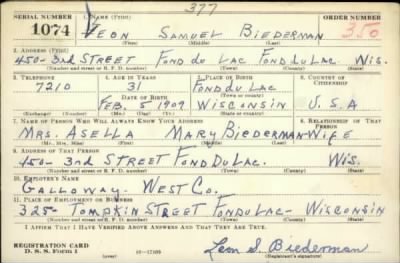 377
SERIAL NUMBER 1. NAME (Print) ORDER NUMBER
1074 LEON SAMUEL BIEDERMAN 350
(First) (Middle) (Last)
2. ADDRESS (Print)
450-3rd STREET FOND du LAC FOND du LAC WIS.
(Number and street or R. F. D. number) (Town) (County) (State)
3. TELEPHONE 4. AGE IN YEARS 5. PLACE OF BIRTH 6. COUNTRY OF CITIZENSHIP
7210 31 FOND du LAC
DATE OF BIRTH (Town or county)
FEB. 5 1909 WISCONSIN U.S.A
(Exchange) (Number) (Mo.) (Day) (Yr.) (State or country)
7. NAME OF PERSON WHO WILL ALWAYS KNOW YOUR ADDRESS 8. RELATIONSHIP OF THAT PERSON
MRS. ASELLA MARY BIEDERMAN WIFE
(Mr., Mrs., Miss) (First) (Middle) (Last)
9. ADDRESS OF THAT PERSON
450-3rd STREET FOND DU LAC. WIS.
(Number and street or R. F. D. number) (Town) (County) (State)
10. EMPLOYER'S NAME
GALLOWAY-WEST CO.
11. PLACE OF EMPLOYMENT OR BUSINESS
325-TOMPKIN STREET FOND DU LAC-WISCONSIN
(Number and street or R. F. D. number) (Town) (County) (State)
I AFFIRM THAT I HAVE VERIFIED ABOVE ANSWERS AND THAT THEY ARE TRUE.
REGISTRATION CARD
D. S. S. FORM 1 Leon S. Biederman
(Registrant's signature)